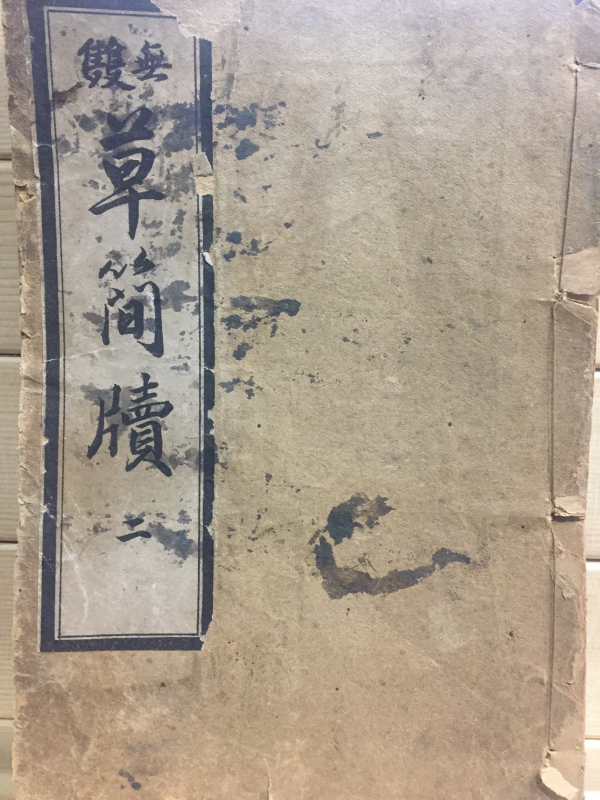 無雙
草簡牘
二